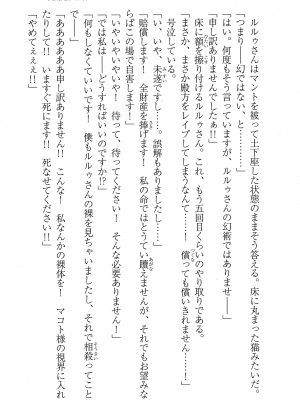 ルルゥさんはマントを被って土下座した状態のままそう答える。床に丸まった猫みたいだ。
「つまり──幻ではない、と………」
「はい。何度もそう言っていますが、ルルゥさんの幻術ではありません──」
「申し訳ありませんでしたぁ!!」
床に額を擦り付けるルルゥさん。これ、もう五回目くらいのやり取りである。
「まさか、まさか殿方をレイプしてしまうなんて……! 償っても償いきれません……」
号泣している。
「い、いや、未遂ですし……。誤解もありましたし……」
「賠償します! 全財産を捧げます! 私の命ではとうてい贖えませんが、それでもお望みな
らばこの場で自害します!」
「いやいやいやいや! 待って、待ってください! そんな必要ありません!」
「では私は──どうすればよいのですか!?」
「何もしなくていいです! 僕もルルゥさんの裸を見ちゃいましたし、それで相殺ってこと
「ああああああ申し訳ありません!! こんな! 私なんかの裸体を! マコト様の視界に入れ
てしまい!! いますぐ死にます!! 死なせてください!!」
「やめてぇぇぇ!!」